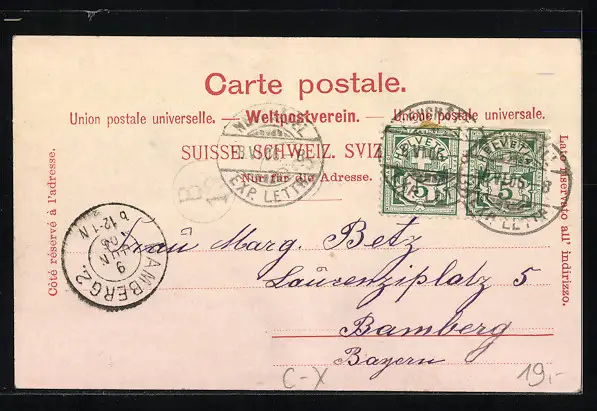 Carte postale.
Union postale universelle. — Weltpostverein. — Unione postale universale.
SUISSE. SCHWEIZ. SVIZ
Nur für die Adresse.
Côté réservé à l'adresse.
Lato riservato all' indirizzo.
HELVETIA
5
HELVETIA
5
EXP. LETTR.
BAMBERG 2
9
JUN
06
12-1 N
b
Frau Marg. Betz
Laurenziplatz 5
Bamberg
Bayern
C-X
19,-